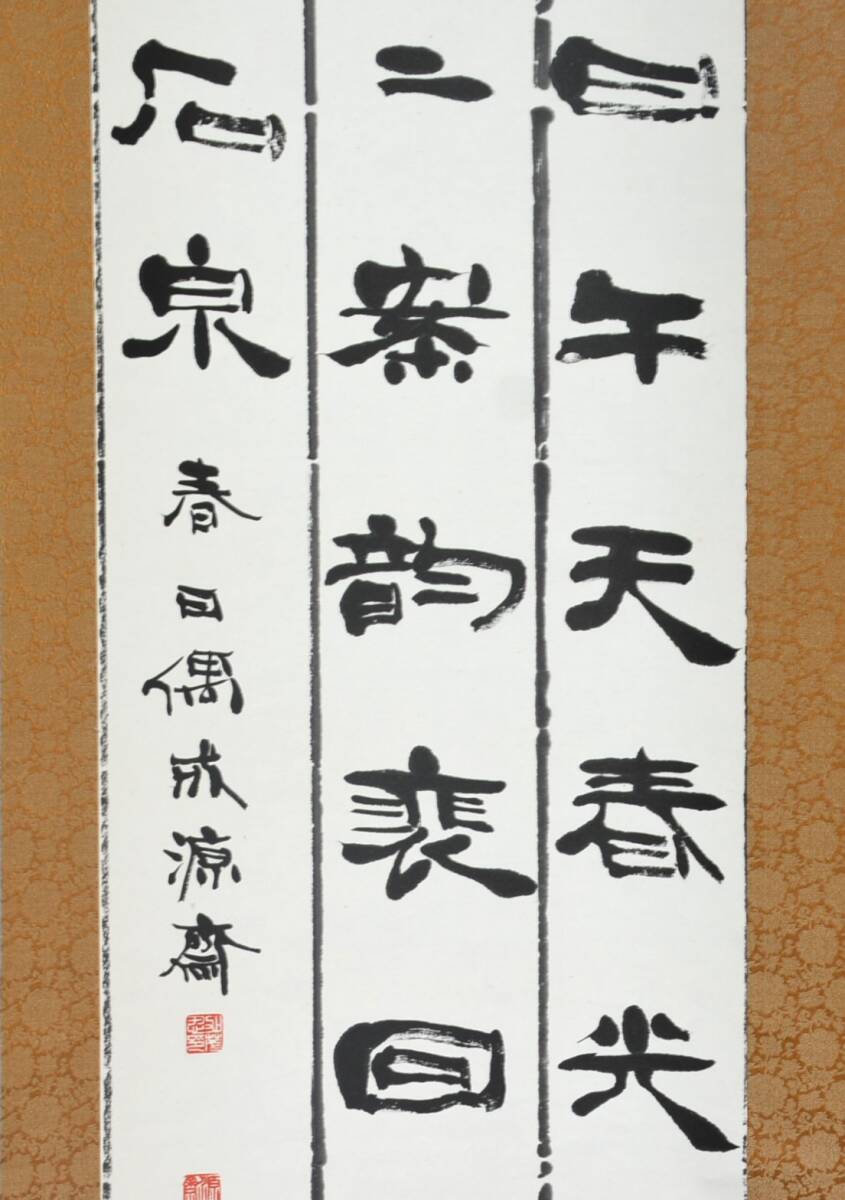 日午天春光
二案韵裴回
石泉
春日偶成源齋